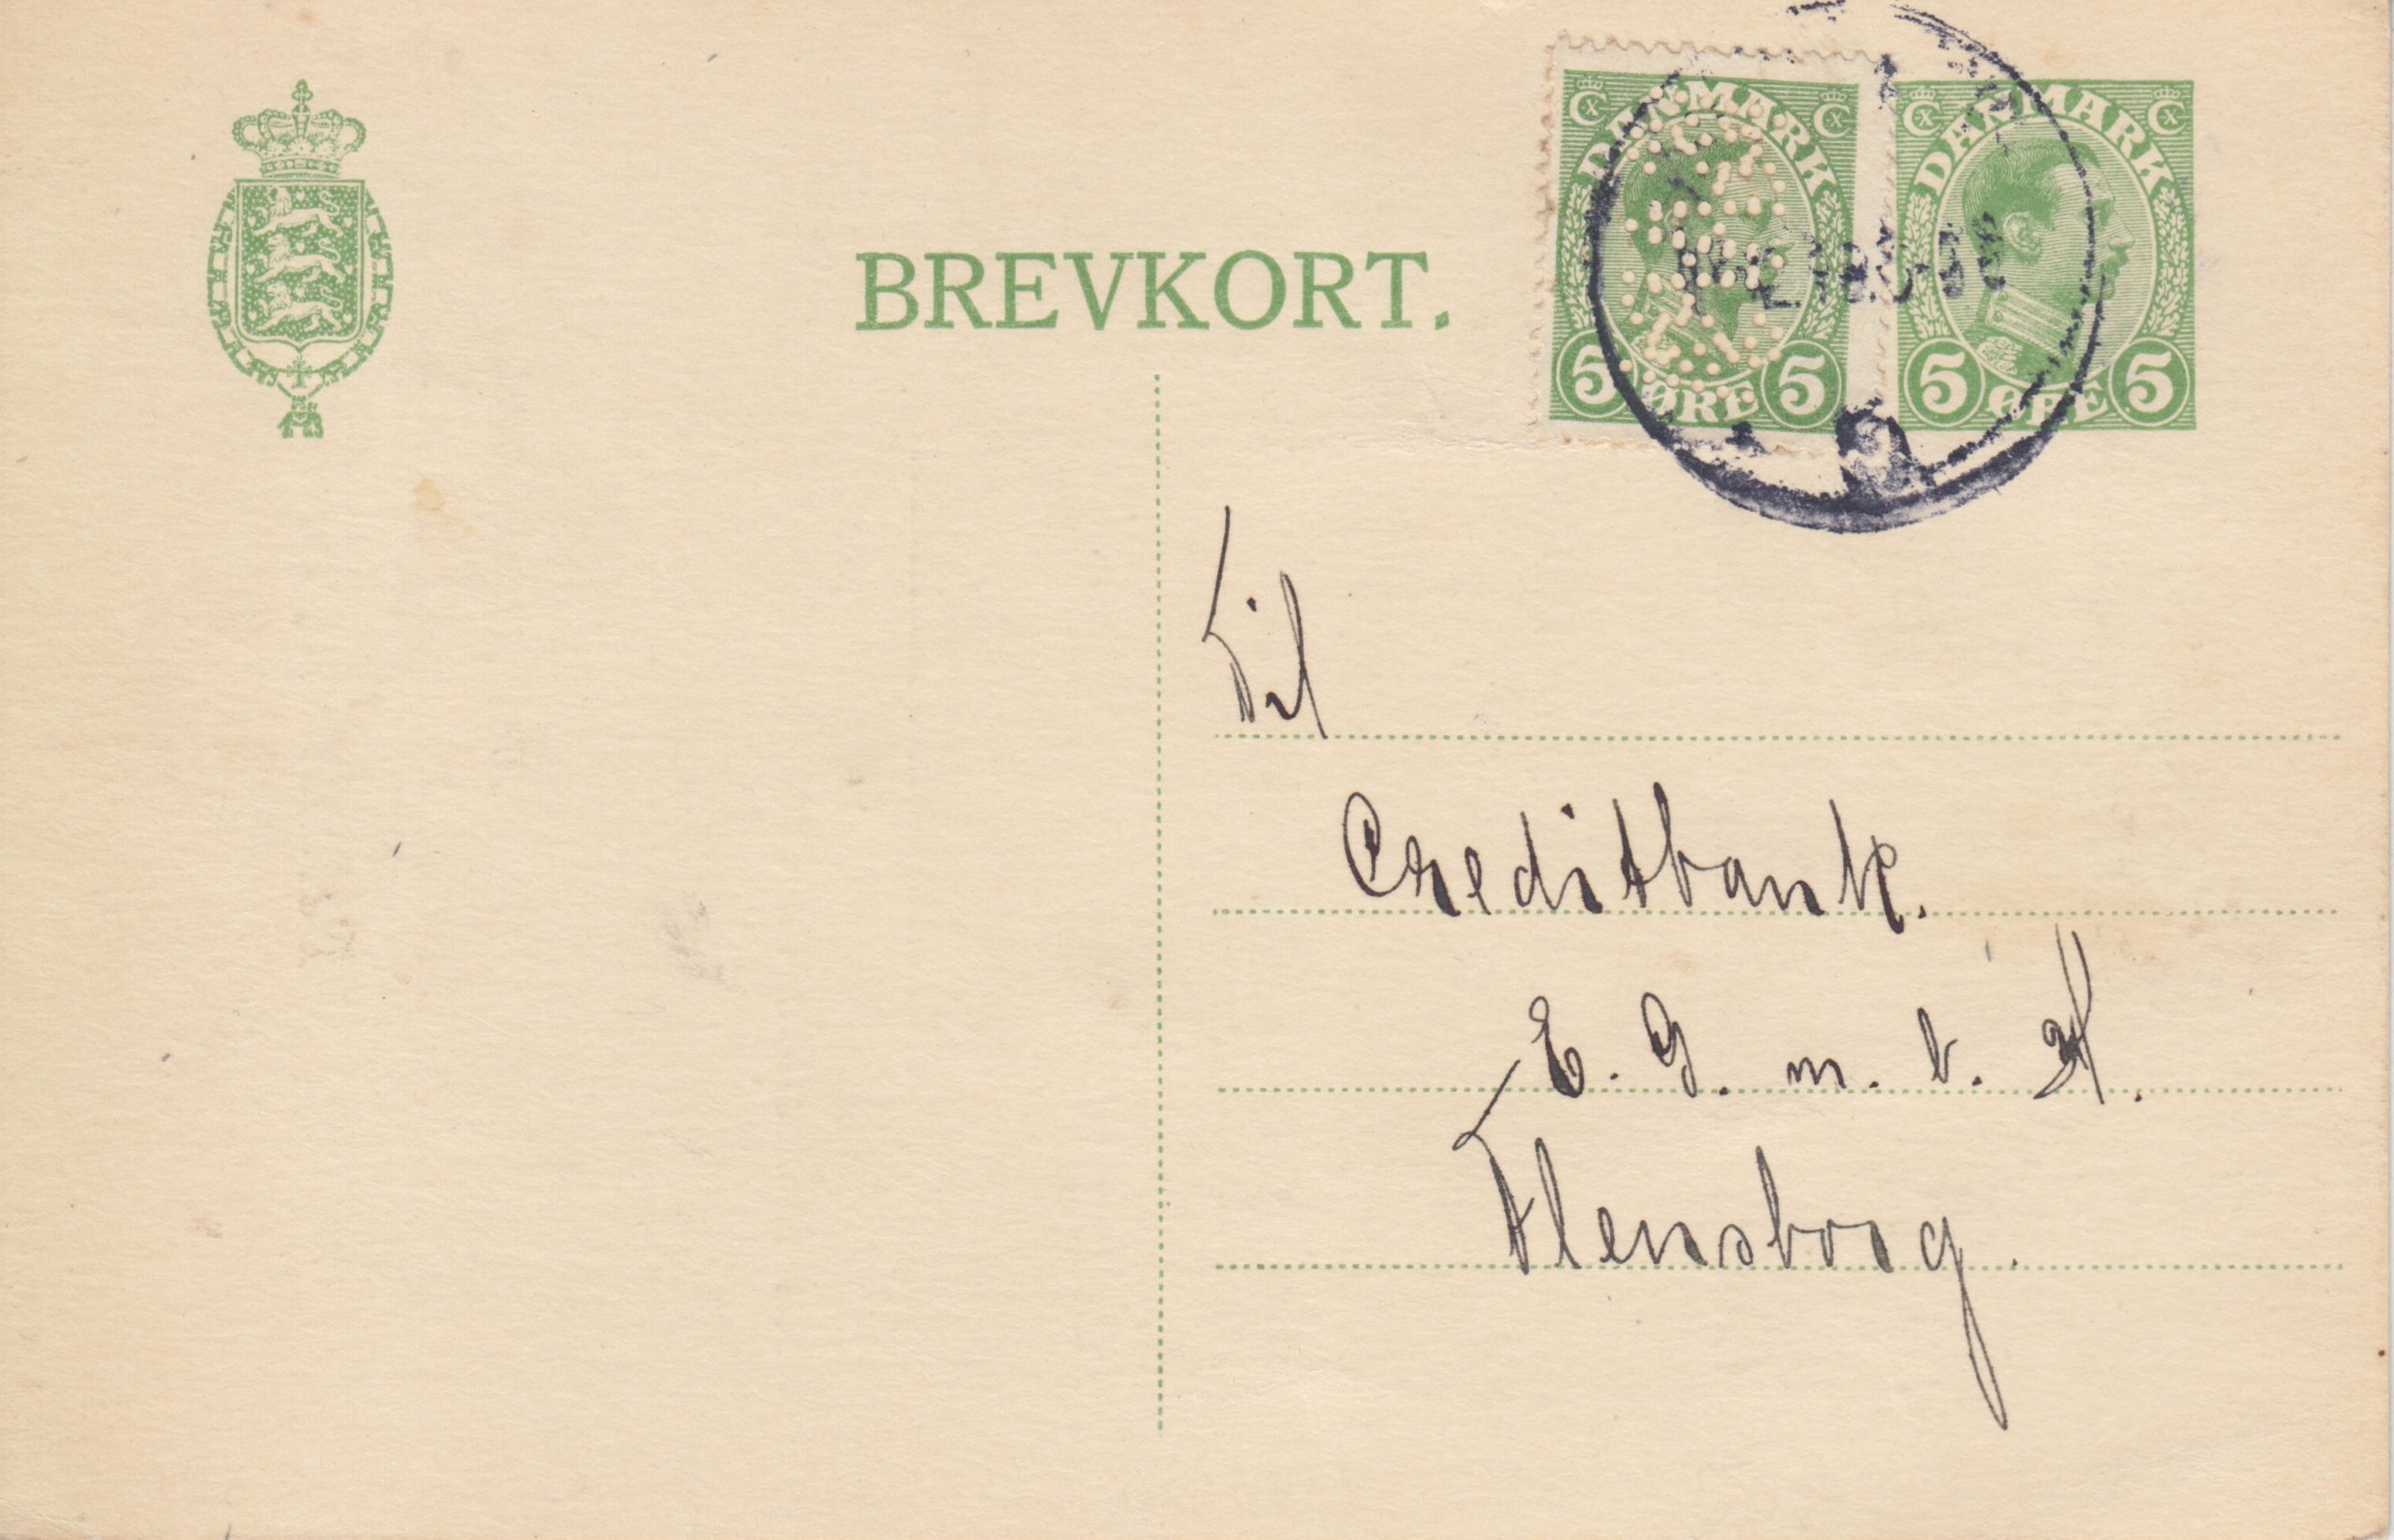 BREVKORT.
DANMARK
5 ØRE 5
DANMARK
5 ØRE 5
Til
Creditbank.
E. G. m. b. H.
Flensborg.